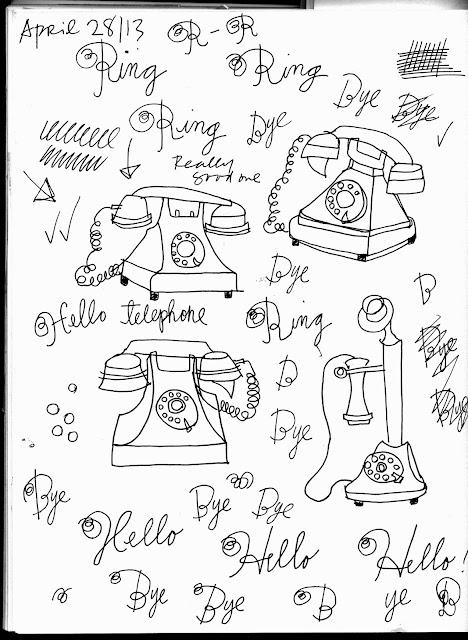 April 28/13 R-R
Ring Ring
Bye Bye
Ring Bye
Really
good one
Bye
Hello telephone Ring
B
Bye
B
Bye
Bye
Bye
Bye Bye Bye
Hello Hello Hello!
Bye Bye B ye B